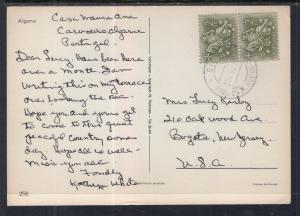 Algarve
Casa Maria Ana
Carvoeiro Algarve
Portugal
Dear Lucy, Have been here
over a month. I am
writing this on my terrace
over looking the sea.
Hope you and yours get
to come to this quiet
peaceful country some
day. Hope all is well-
Miss you all
Fondly
Kathryn White
256
Mrs Lucy Kirby
210 Oakwood Ave.
Bogota, New Jersey
U.S.A.